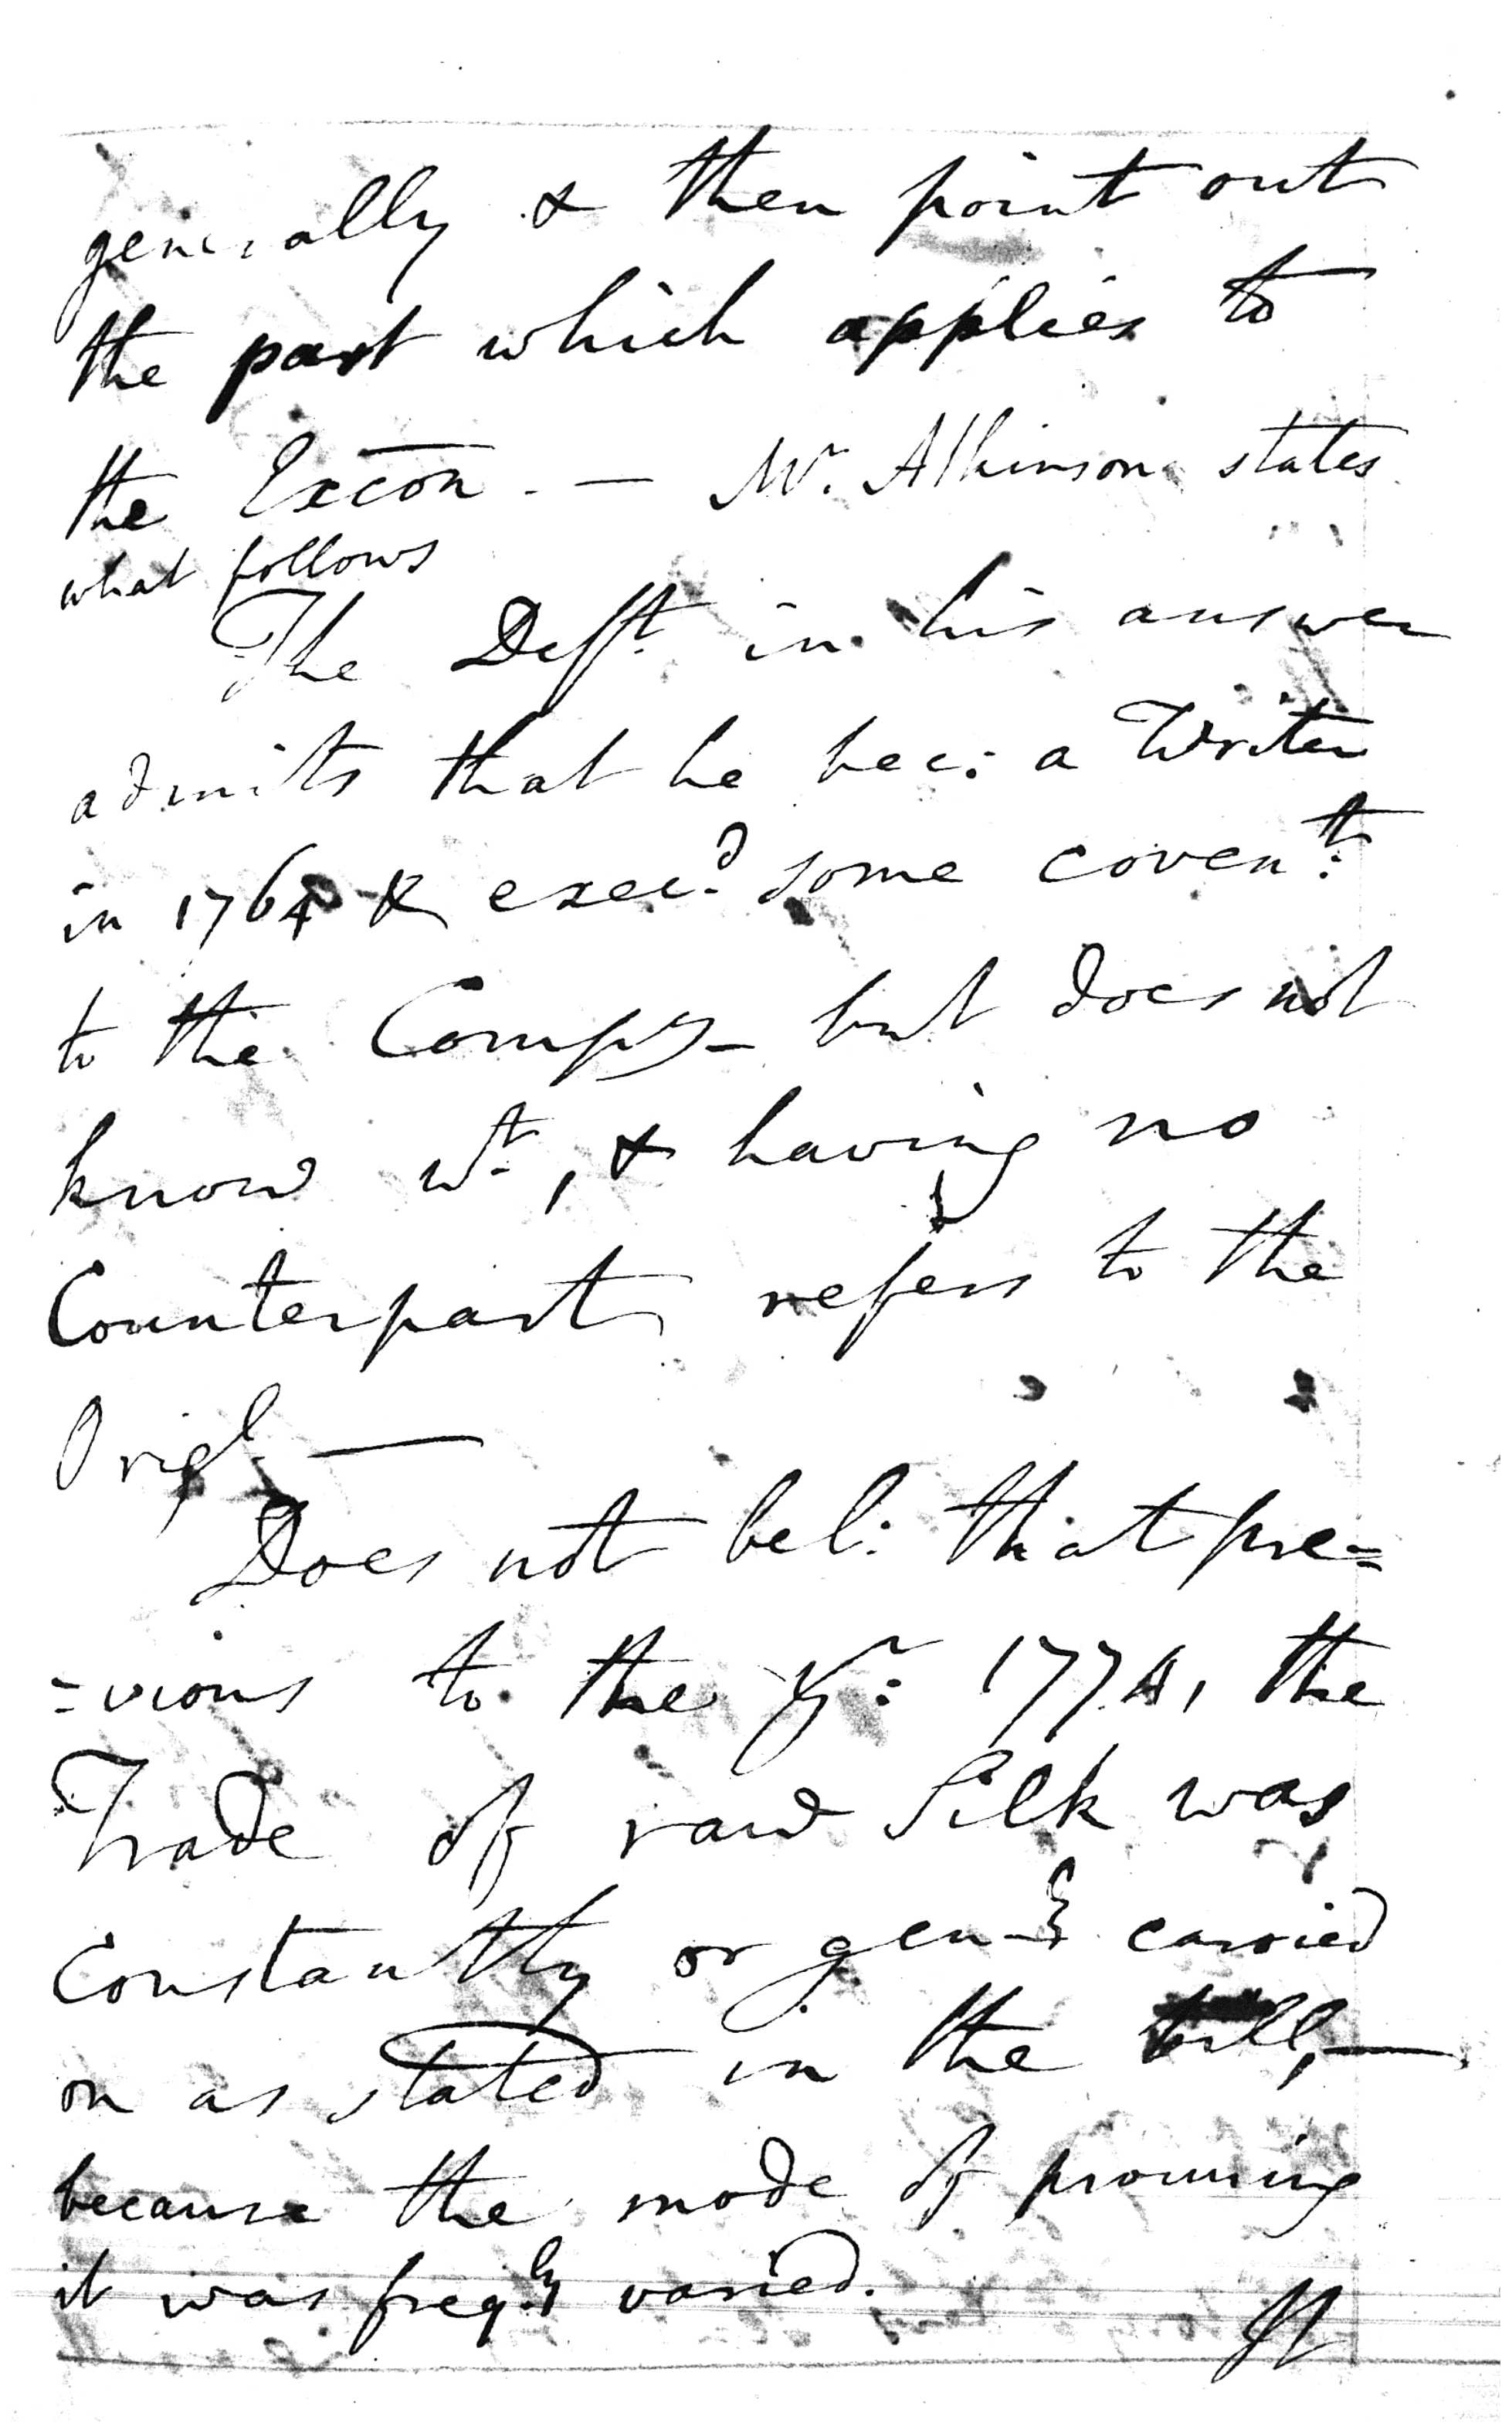 generally & then point out
the part which applies to
the Excōn. — Mr. Atkinson states
what follows
The Deft. in his answer
admits that he bec: a Writer
in 1764 & exec.d some coven:ts
to the Compy — but does not
know wt, & having no
Counterpart refers to the
Origl. —
Does not bel: that pre=
=vious to the yr: 1774, the
Trade of raw Silk was
Constantly or gen.ly carried
on as stated in the bill, —
because the mode of procuring
it was freq.ly varied.
It